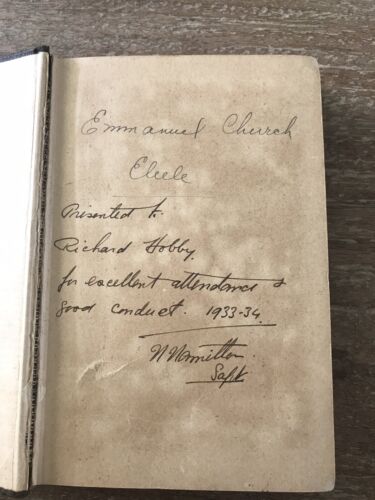 Emmanuel Church
Presented to
Richard Hobby.
for excellent attendance &
good conduct. 1933-34.
Supt